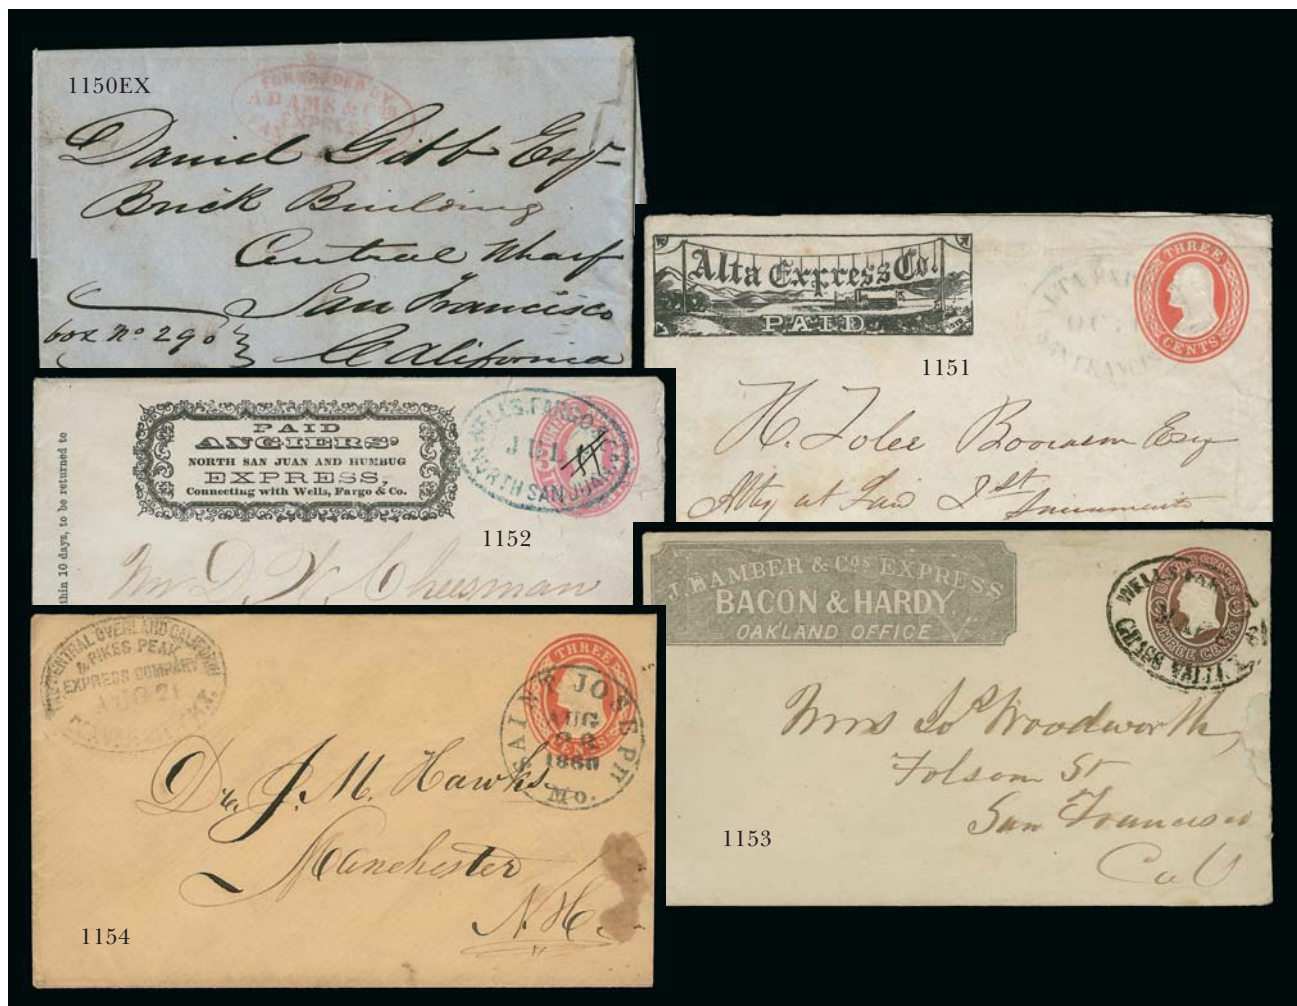 1150EX
FORWARDED BY
ADAMS & COS
EXPRESS
Daniel Gibb Esqr
Brick Building
Central Wharf
San Francisco
box No 290
California
Alta Express Co.
PAID
THREE
CENTS
ALTA EXP
SAN FRANCIS
1151
Atty at Law
Sacramento
thin 10 days, to be returned to
PAID
ANGIERS'
NORTH SAN JUAN AND HUMBUG
EXPRESS,
Connecting with Wells, Fargo & Co.
WELLS, FARGO & CO.
JUL
NORTH SAN JUAN
1152
Mr D. W. Cheesman
J. BAMBER & COS EXPRESS
BACON & HARDY,
OAKLAND OFFICE
WELLS FAR
GRASS VALLEY
THREE CENTS
Mrs Jos Woodworth,
Folsom St
San Francisco
Cal
1153
THE CENTRAL OVERLAND CALIFORNIA
& PIKES PEAK
EXPRESS COMPANY
AUG 21
THREE
CENTS
SAINT JOSEPH
AUG
22
1860
Mo.
Dr. J. M. Hawks
Manchester
N.H.
1154